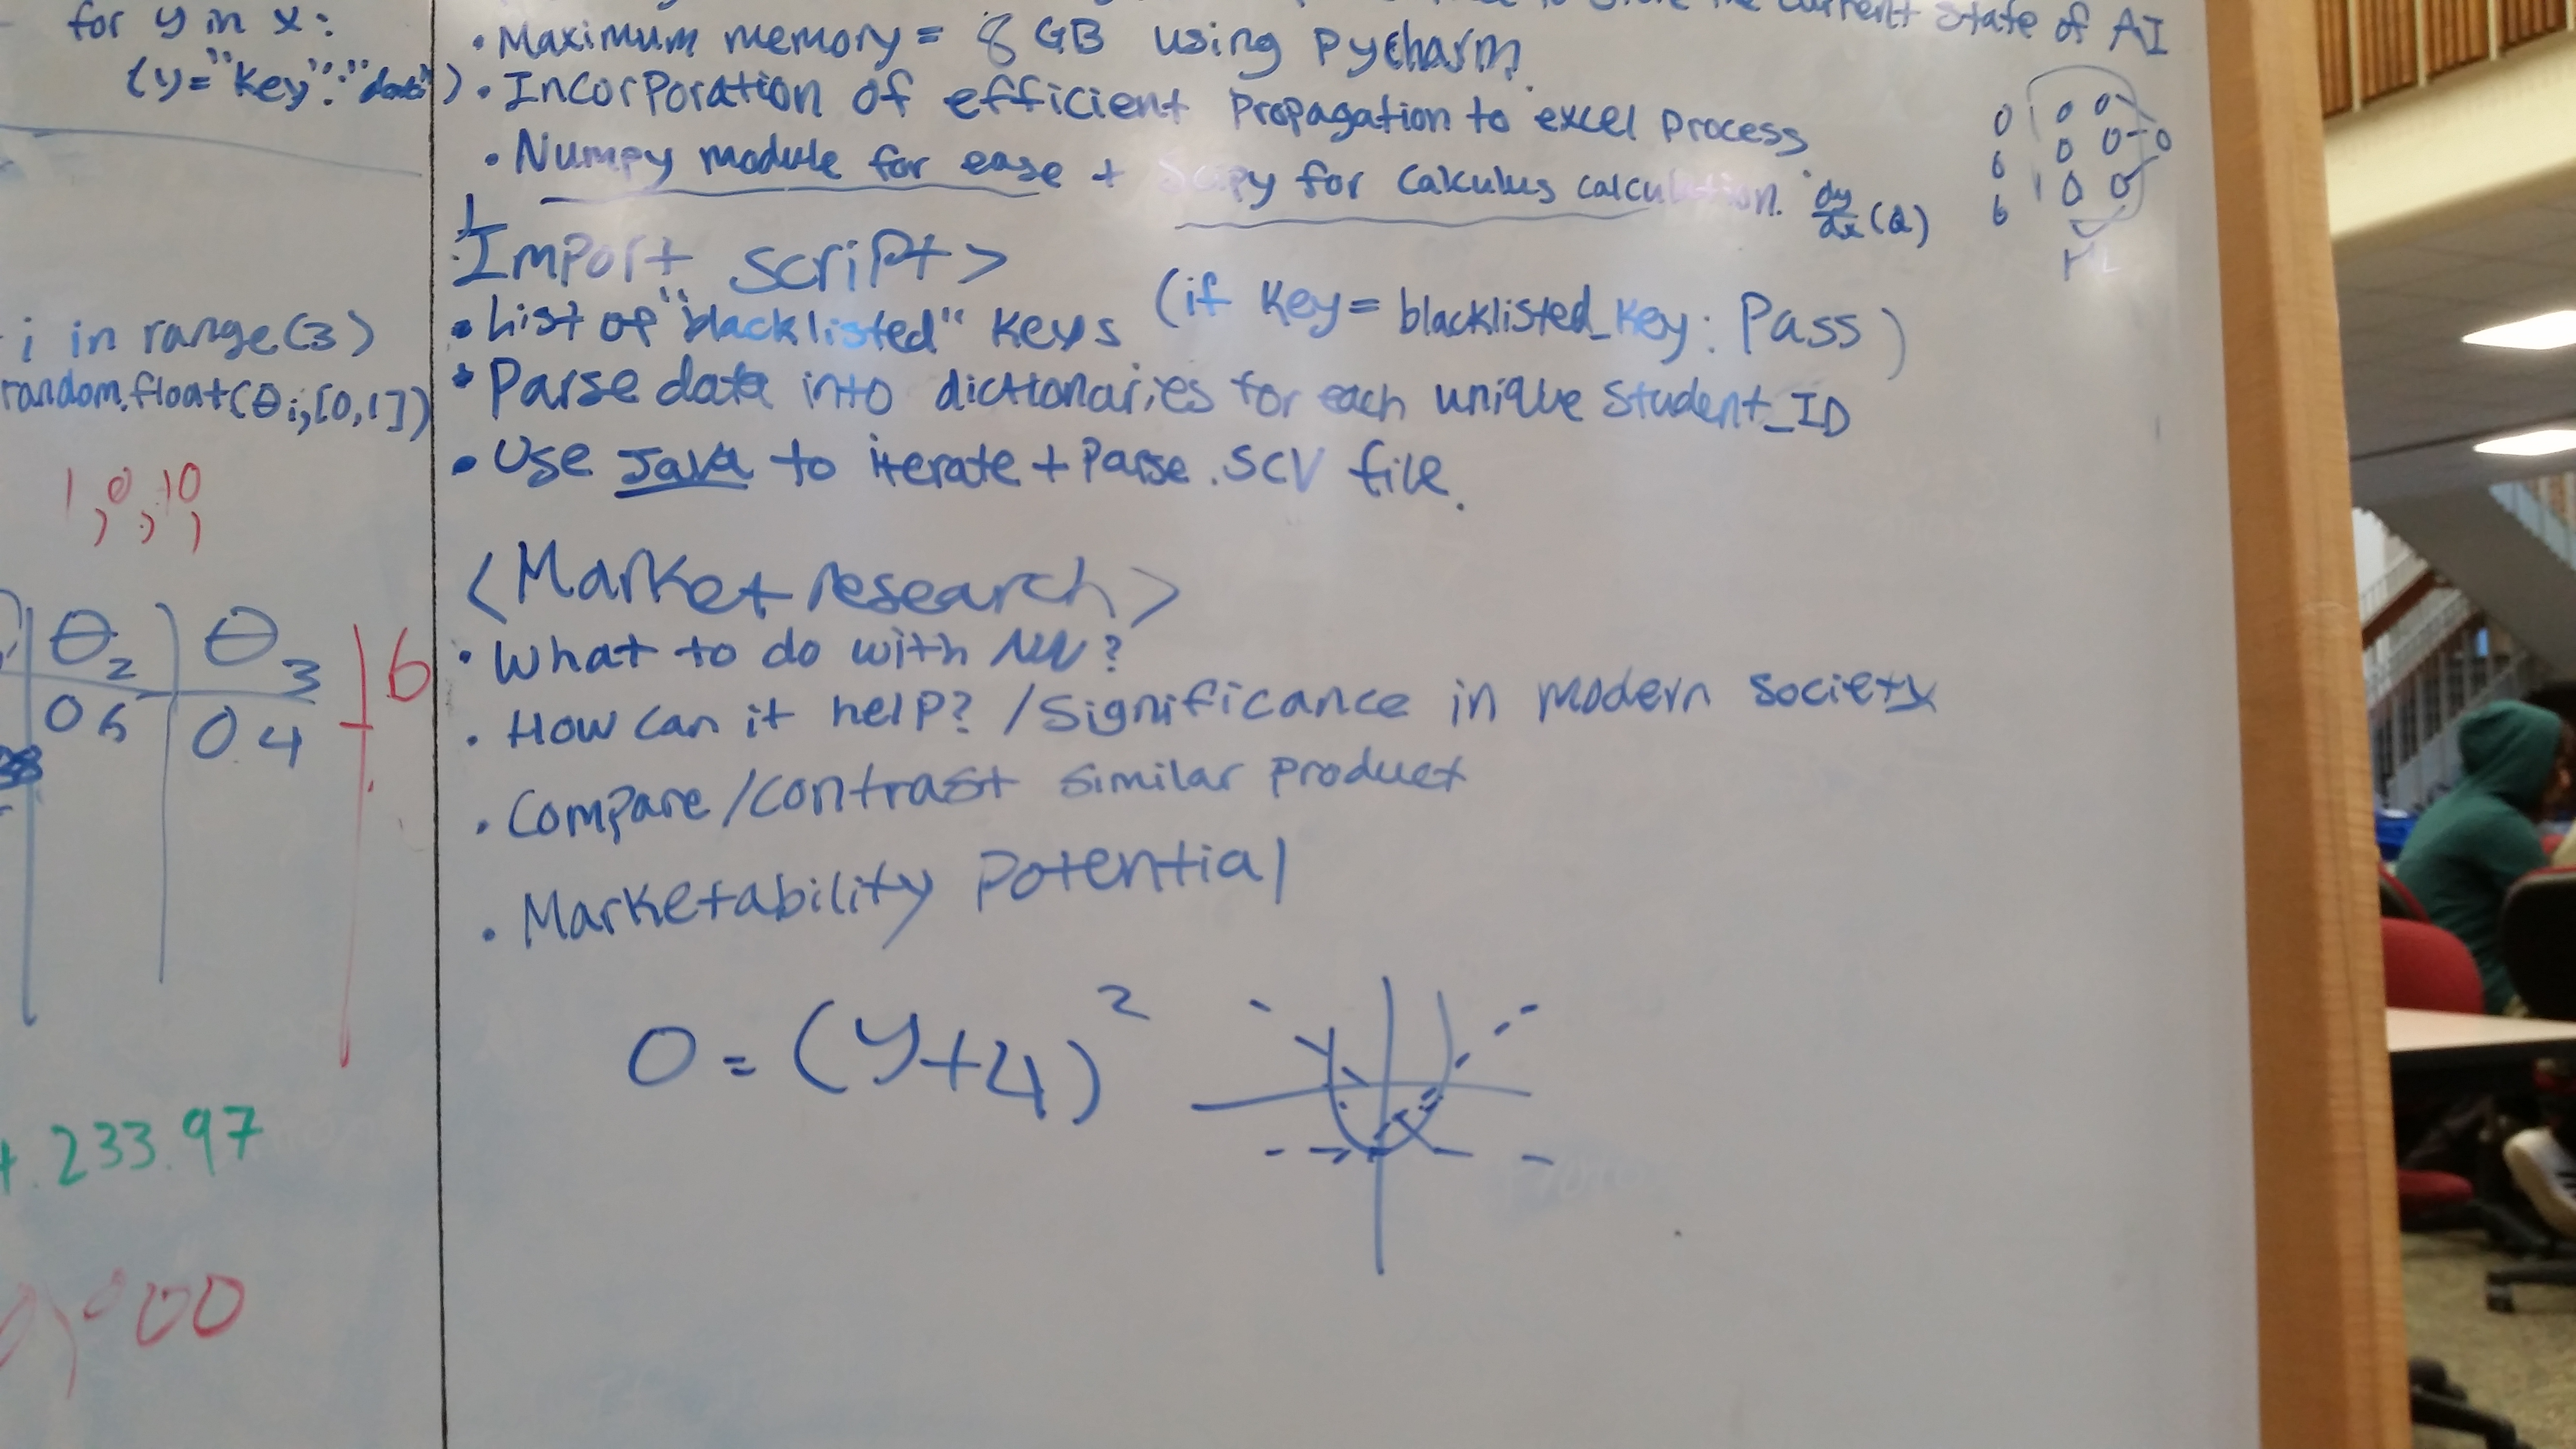 for y in x:
(y="key":"data")
i in range(3)
random.float(θi,[0,1])
1,0,10,
θ2 θ3 6
0.4
.233.97
State of AI
• Maximum memory = 8 GB using pycharm.
• Incorporation of efficient propagation to excel process
• Numpy module for ease + Scipy for calculus calculation. dy/dx (a)
Import script>
• List of "blacklisted" keys (if key= blacklisted_key: Pass)
• Parse data into dictionaries for each unique Student_ID
• Use Java to iterate + Parse .SCV file.
<Market research>
• What to do with NN?
• How can it help? / Significance in modern society
• Compare/contrast similar product
• Marketability Potential
0 = (y+4)²